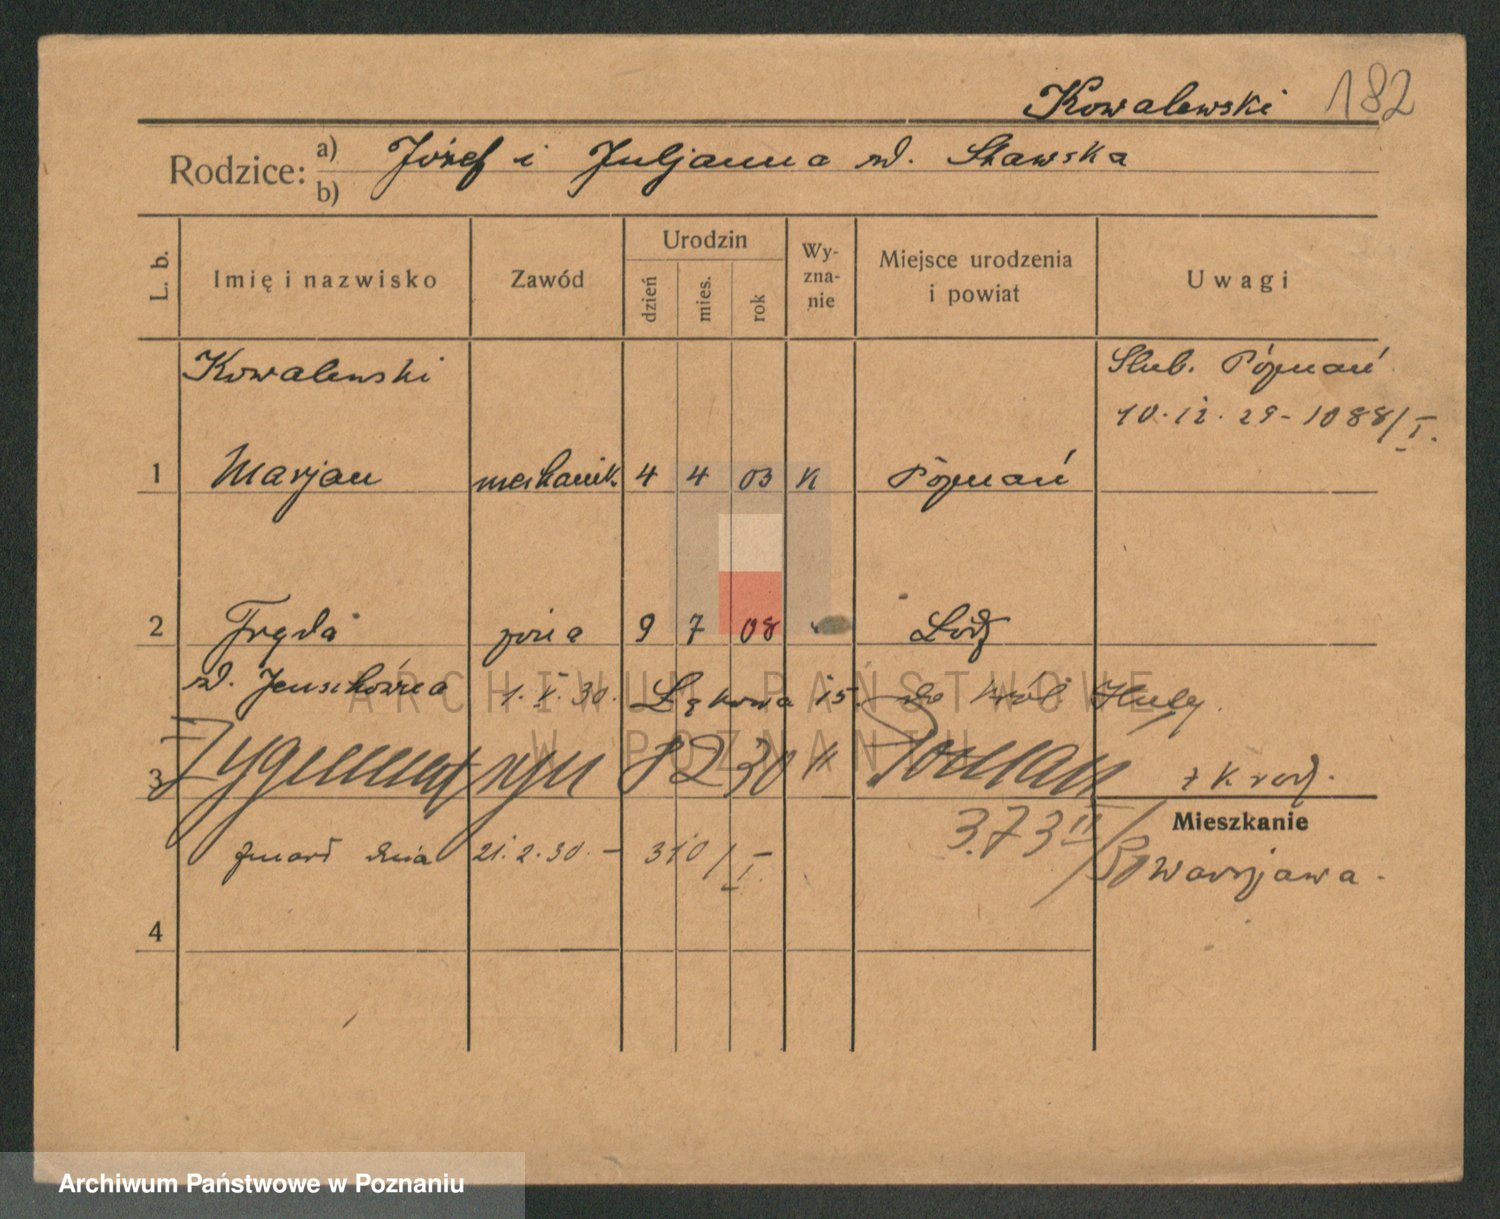 Kowalewski 182
Rodzice: a) Józef i Juljanna zd. Sławska
b)
L. b. Imię i nazwisko Zawód Urodzin dzień mies. rok Wy-zna-nie Miejsce urodzenia i powiat Uwagi
Kowalewski Ślub. Poznań
10.12.29-1088/I.
1 Marjan mechanik 4 4 03 k Poznań
2 Fryda żona 9 7 08 Łódź
zd. 1.X.30. Łąkowa 15. do Król. Huty.
3 Zygmunt syn 8 2 30 k Poznań z k rodz.
Mieszkanie
zmarł dnia 21.2.30.- 310/I. 373 II/30 Warszawa.
4
ARCHIWUM PAŃSTWOWE
W POZNANIU
Archiwum Państwowe w Poznaniu